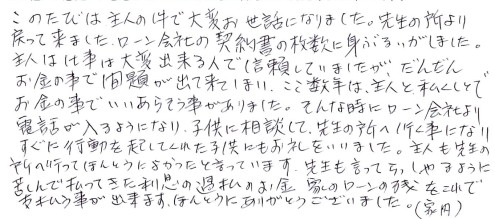 このたびは主人の件で大変お世話になりました。先生の所より
戻って来ました。ローン会社の契約書の枚数に身ぶるいがしました。
主人は仕事は大変出来る人で信頼していましたが、だんだん
お金の事で問題が出て来てしまい、ここ数年は、主人と私くしとで
お金の事でいいあらそう事がありました。そんな時にローン会社より
電話が入るようになり、子供に相談して、先生の所へ行く事になり
すぐに行動を起してくれた子供にもお礼をいいました。主人も先生の
所へ行ってほんとうによかったと言っています。先生も言ってらっしゃるように
苦しんで払ってきた利息の過払のお金 家のローンの残をこれで
支払う事が出来ます。ほんとうにありがとうございました。(家内)